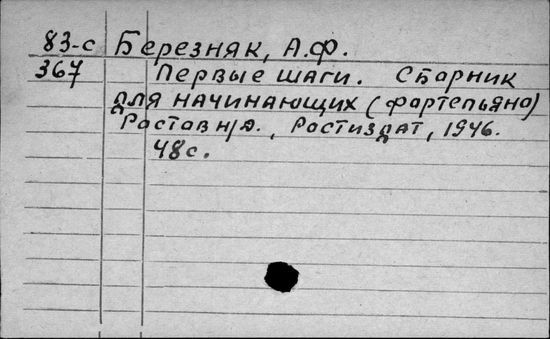 83-с Березняк, А.Ф.
367 Первые шаги. Сборник
для начинающих (фортепьяно)
Ростов н/Д., Ростиздат, 1946.
48с.